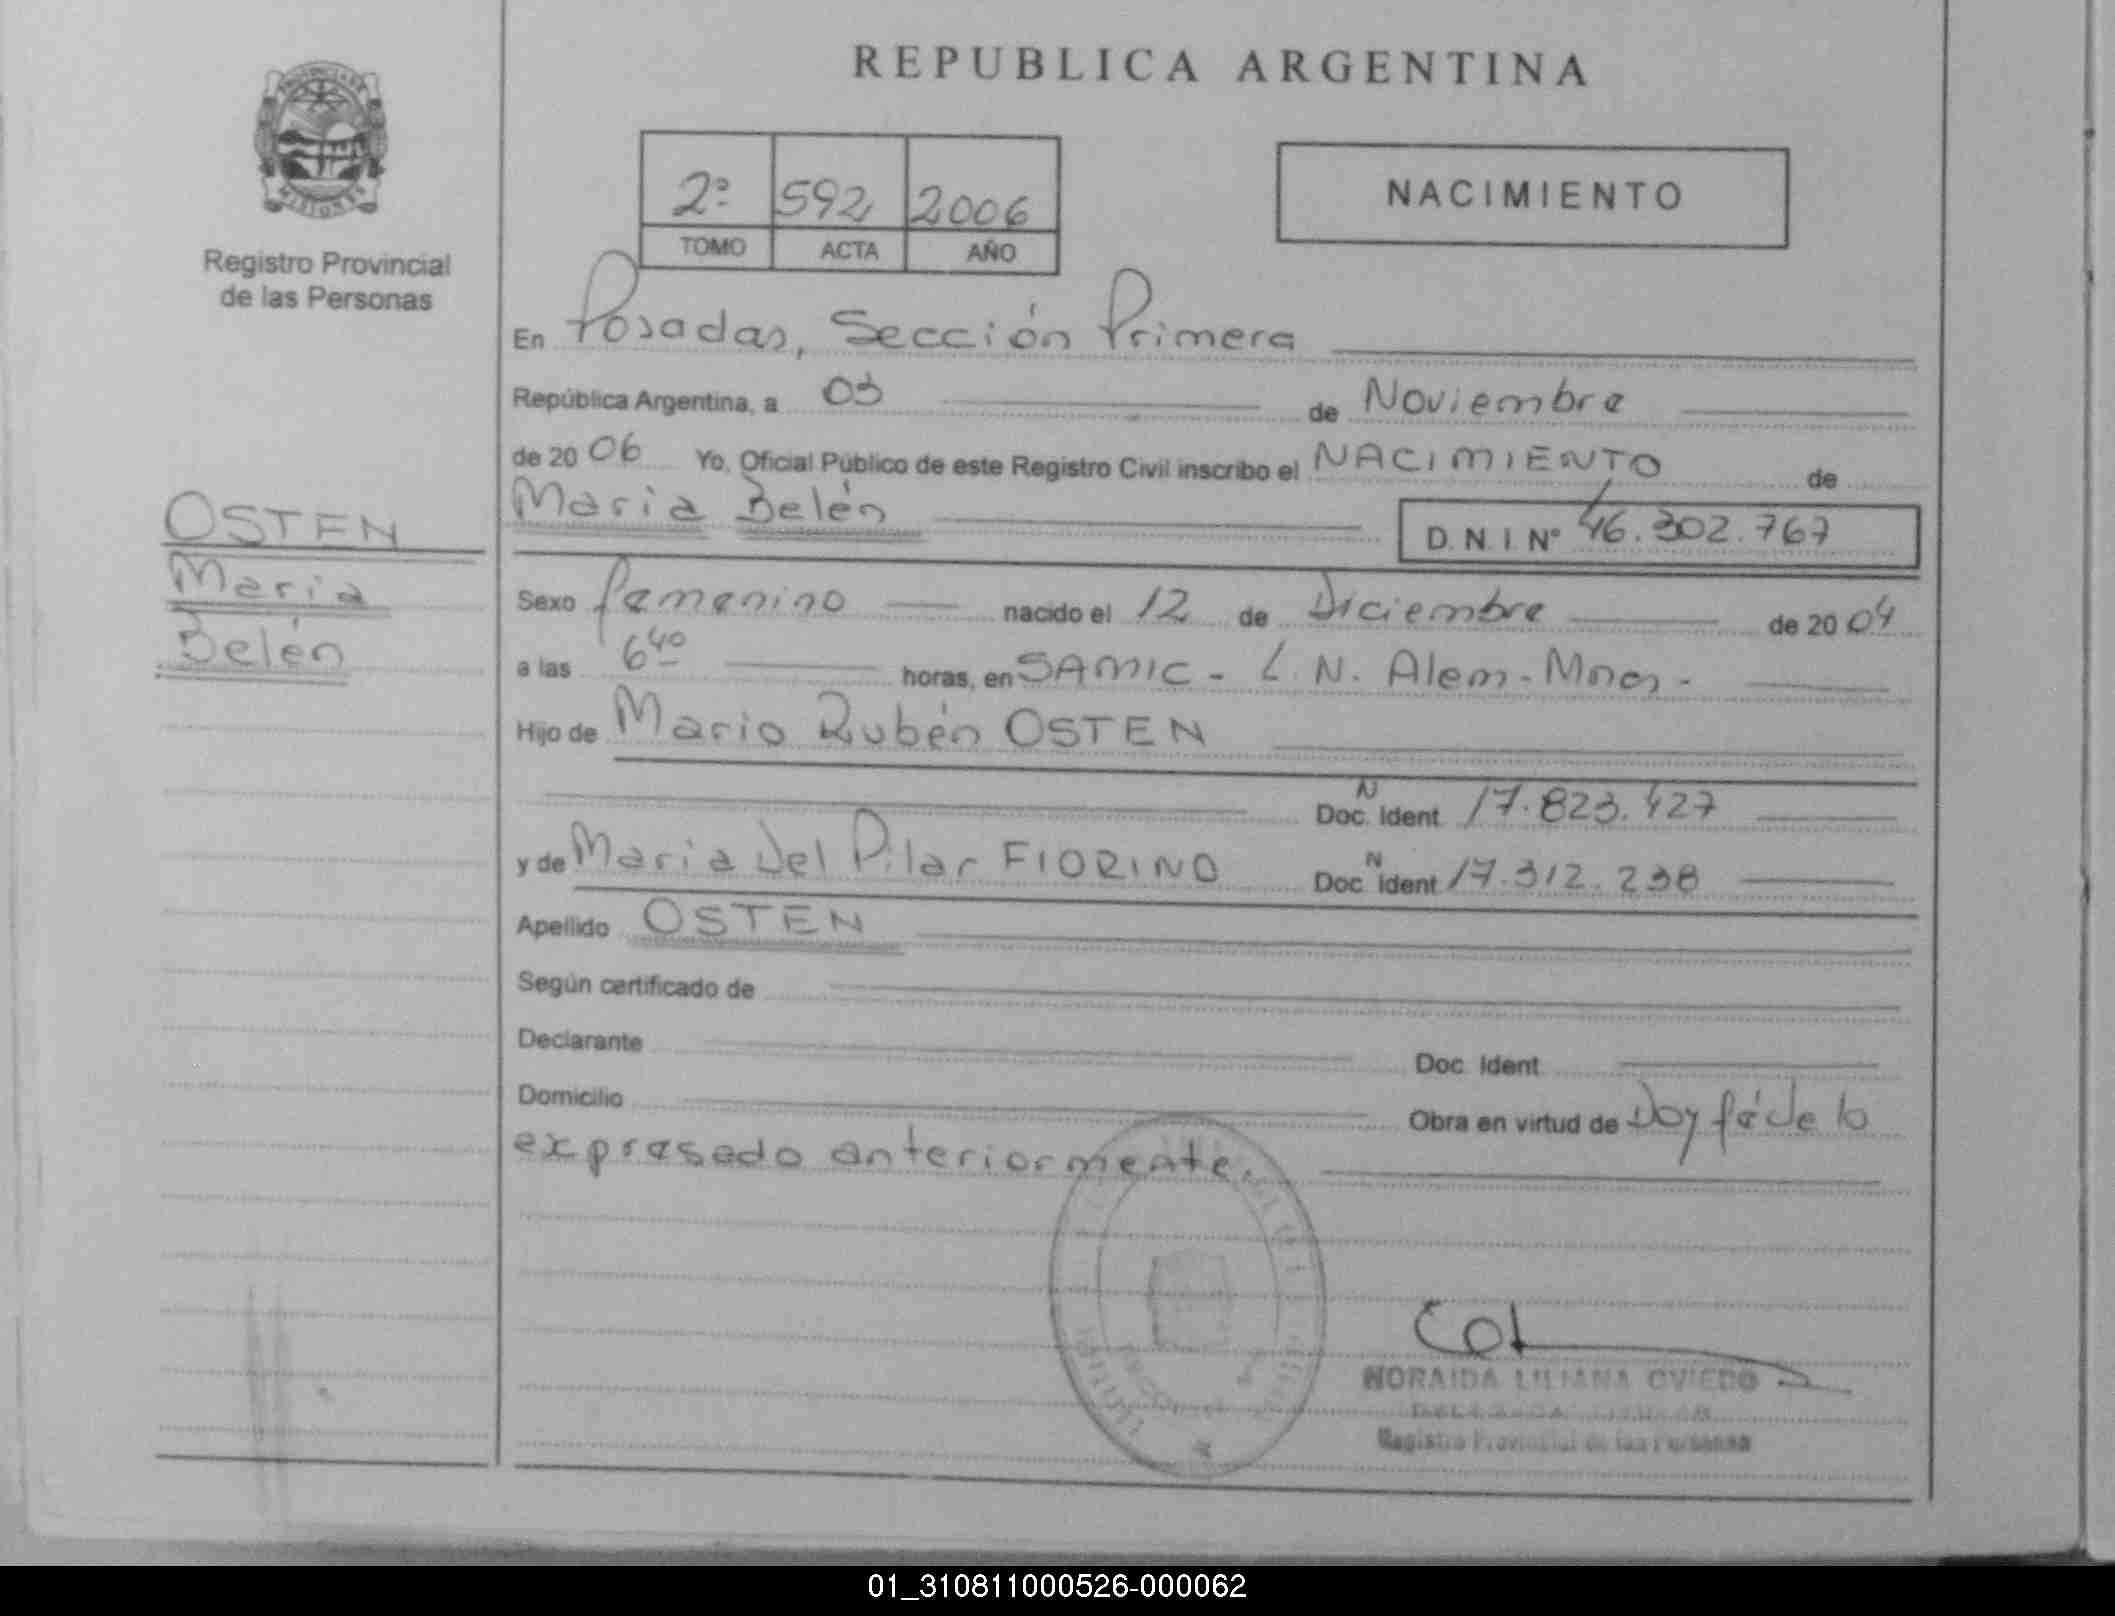 REPUBLICA ARGENTINA
PROVINCIA DE
MISIONES
Registro Provincial
de las Personas
2º 592 2006
TOMO ACTA AÑO
NACIMIENTO
En Posadas, Sección Primera
República Argentina, a 03 de Noviembre
de 20 06 Yo, Oficial Público de este Registro Civil inscribo el NACIMIENTO de
María Belén D.N.I. Nº 46.302.767
OSTEN
María
Belén
Sexo femenino nacido el 12 de Diciembre de 20 04
a las 6 40 horas, en SAMIC - L. N. Alem - Mnes -
Hijo de Mario Rubén OSTEN
N
Doc. Ident. 17.823.427
y de María Del Pilar FIORINO Doc. N Ident 17.312.238
Apellido OSTEN
Según certificado de
Declarante Doc. Ident.
Domicilio Obra en virtud de Doy fé de lo
expresado anteriormente.
NORAIDA LILIANA OVIEDO
Registro Provincial de las Personas
01_310811000526-000062